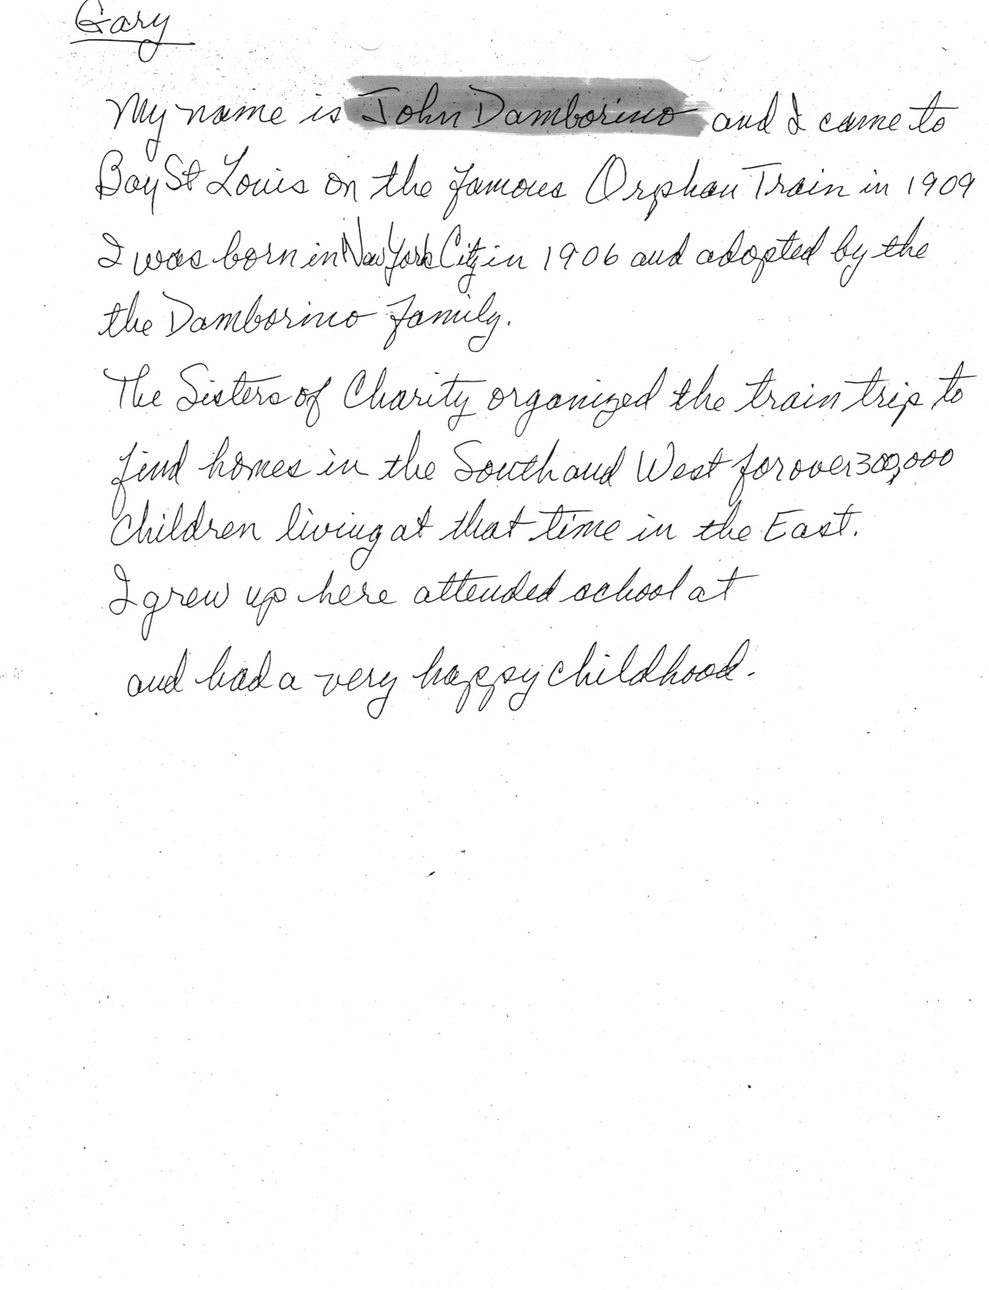 Gary
My name is John Damborino and I came to
Bay St Louis on the famous Orphan Train in 1909
I was born in New York City in 1906 and adopted by the
the Damborino family.
The Sisters of Charity organized the train trip to
find homes in the South and West for over 300,000
children living at that time in the East.
I grew up here attended school at
and had a very happy childhood.